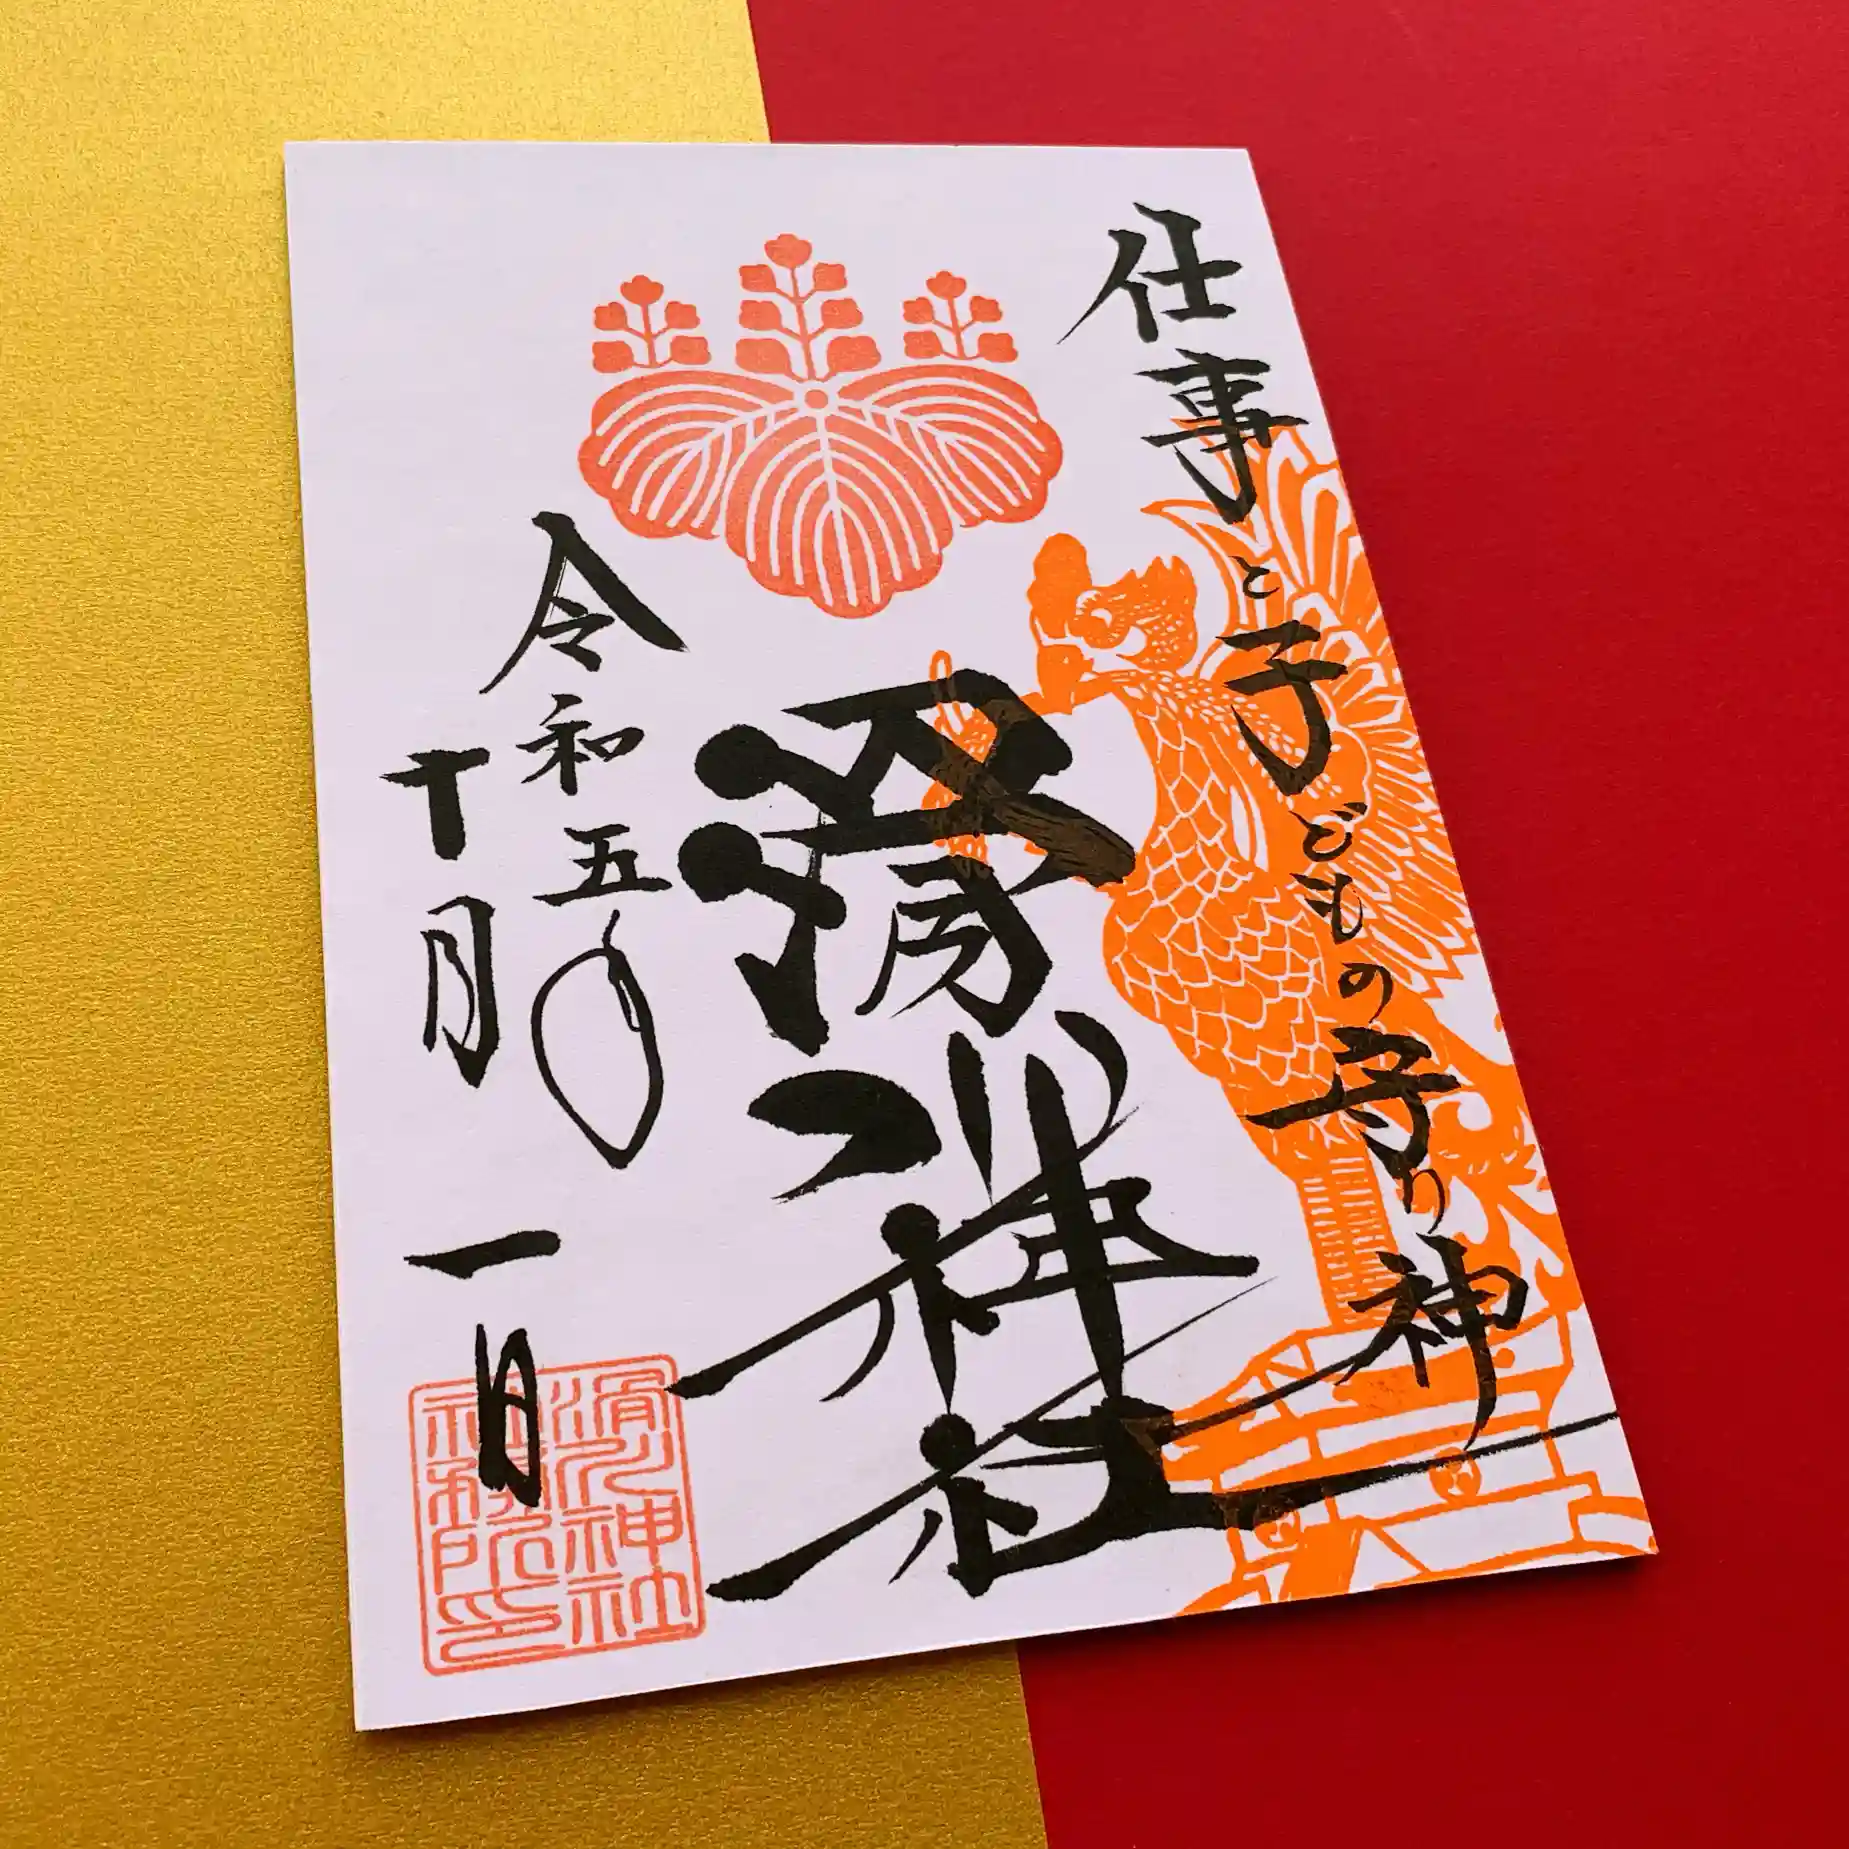 仕事と子どもの守り神
滑川神社
令和五
十月一日
滑川神社
社務所印